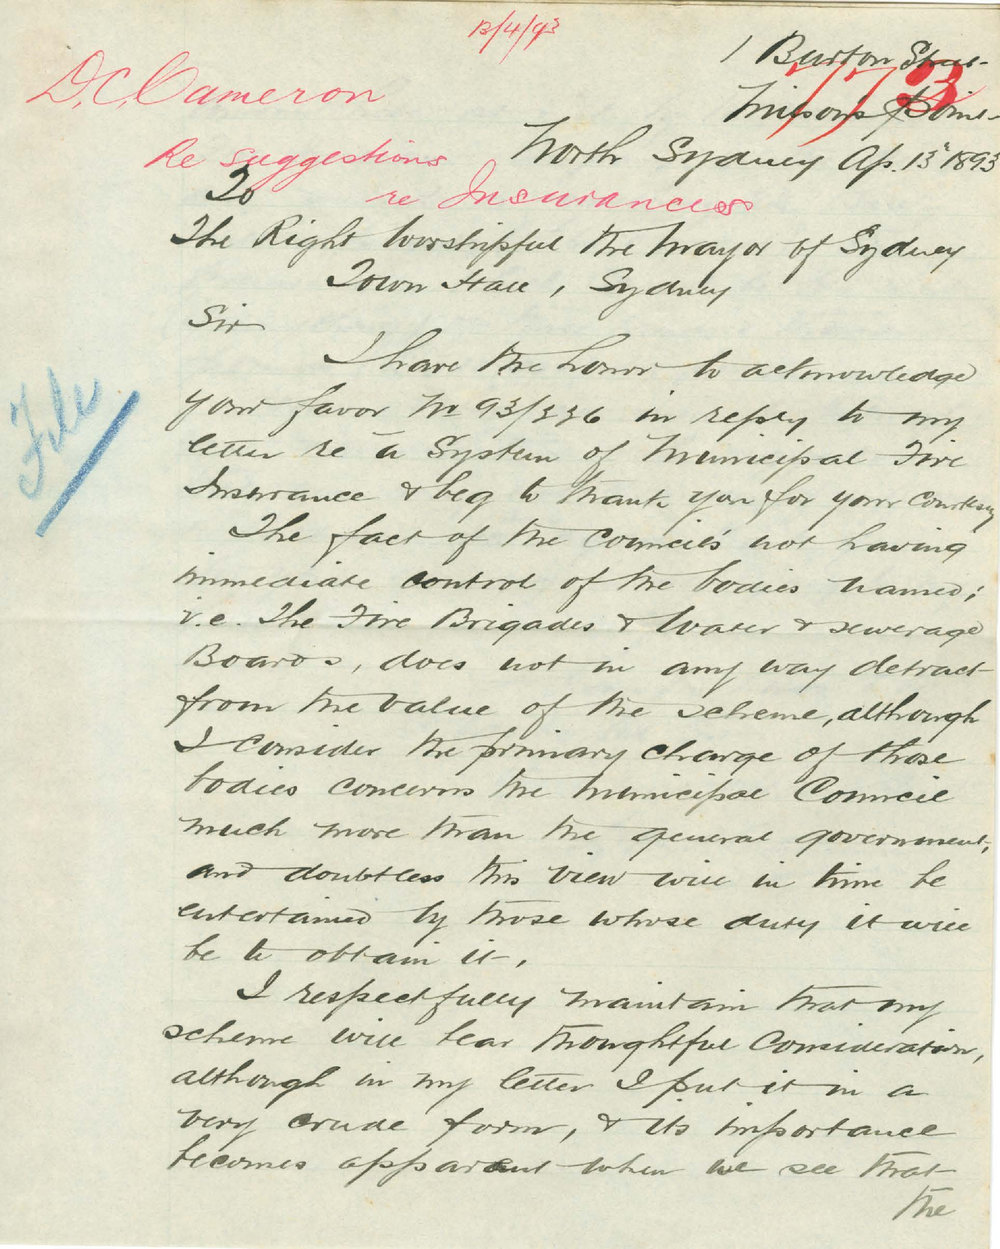 13/4/93
1 Burton Street
773
D.C. Cameron
Milson's Point
North Sydney Ap. 13th 1893
Re suggestions
re Insurances
To
The Right Worshipful the Mayor of Sydney
Town Hall, Sydney
Sir
I have the honor to acknowledge
your favor No 93/336 in reply to my
letter re a System of Municipal Fire
Insurance & beg to thank you for your courtesy
File
The fact of the Council's not having
immediate control of the bodies named;
i.e. The Fire Brigades & Water & sewerage
Boards, does not in any way detract
from the value of the scheme, although
I consider the primary charge of those
bodies concerns the Municipal Council
much more than the general government,
and doubtless this view will in time be
entertained by those whose duty it will
be to obtain it.
I respectfully maintain that my
scheme will bear thoughtful consideration,
although in my letter I put it in a
very crude form, & its importance
becomes apparant when we see that
the